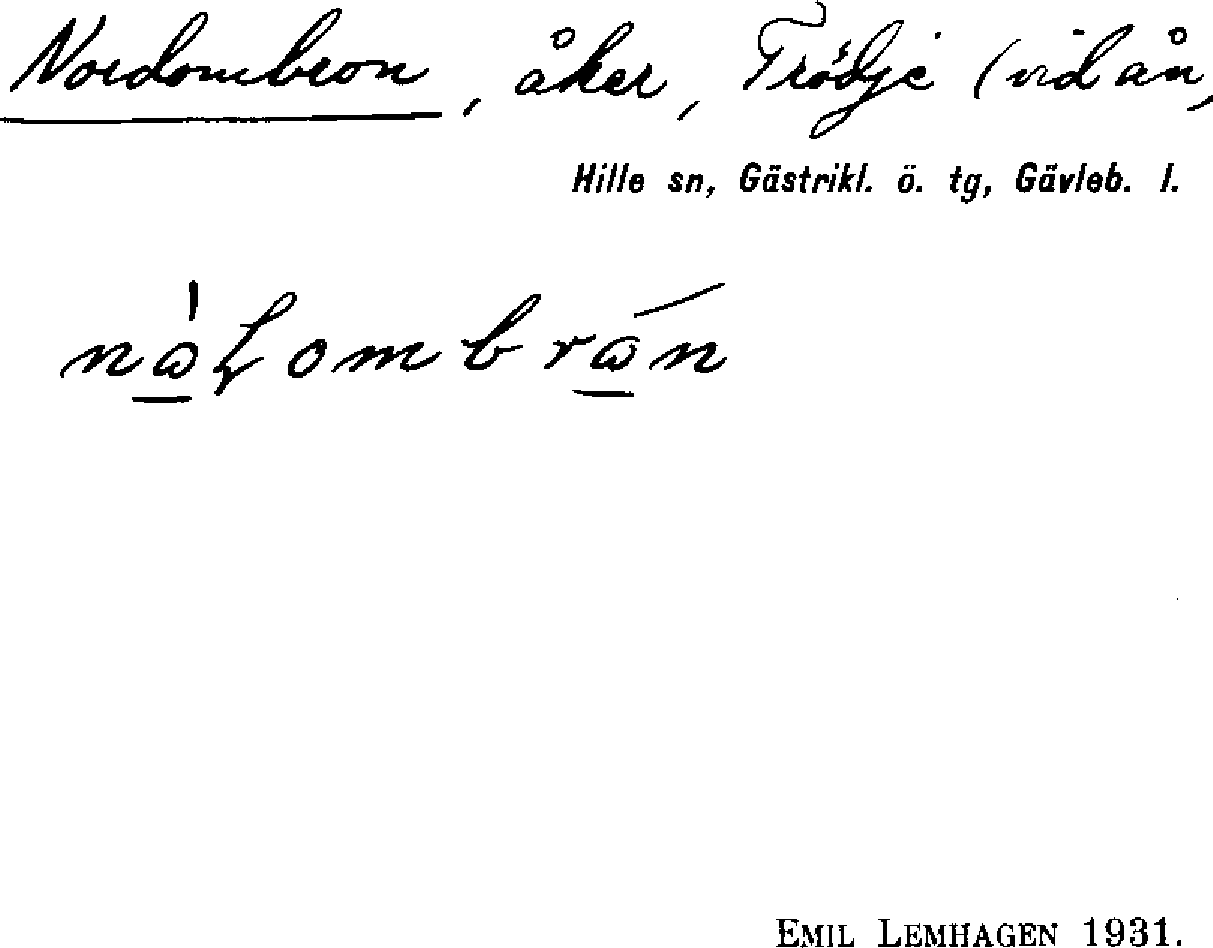 Nordombron, åker, Trödje (vid ån,
Hille sn, Gästrikl. ö. tg, Gävleb. l.
EMIL LEMHAGEN 1931.